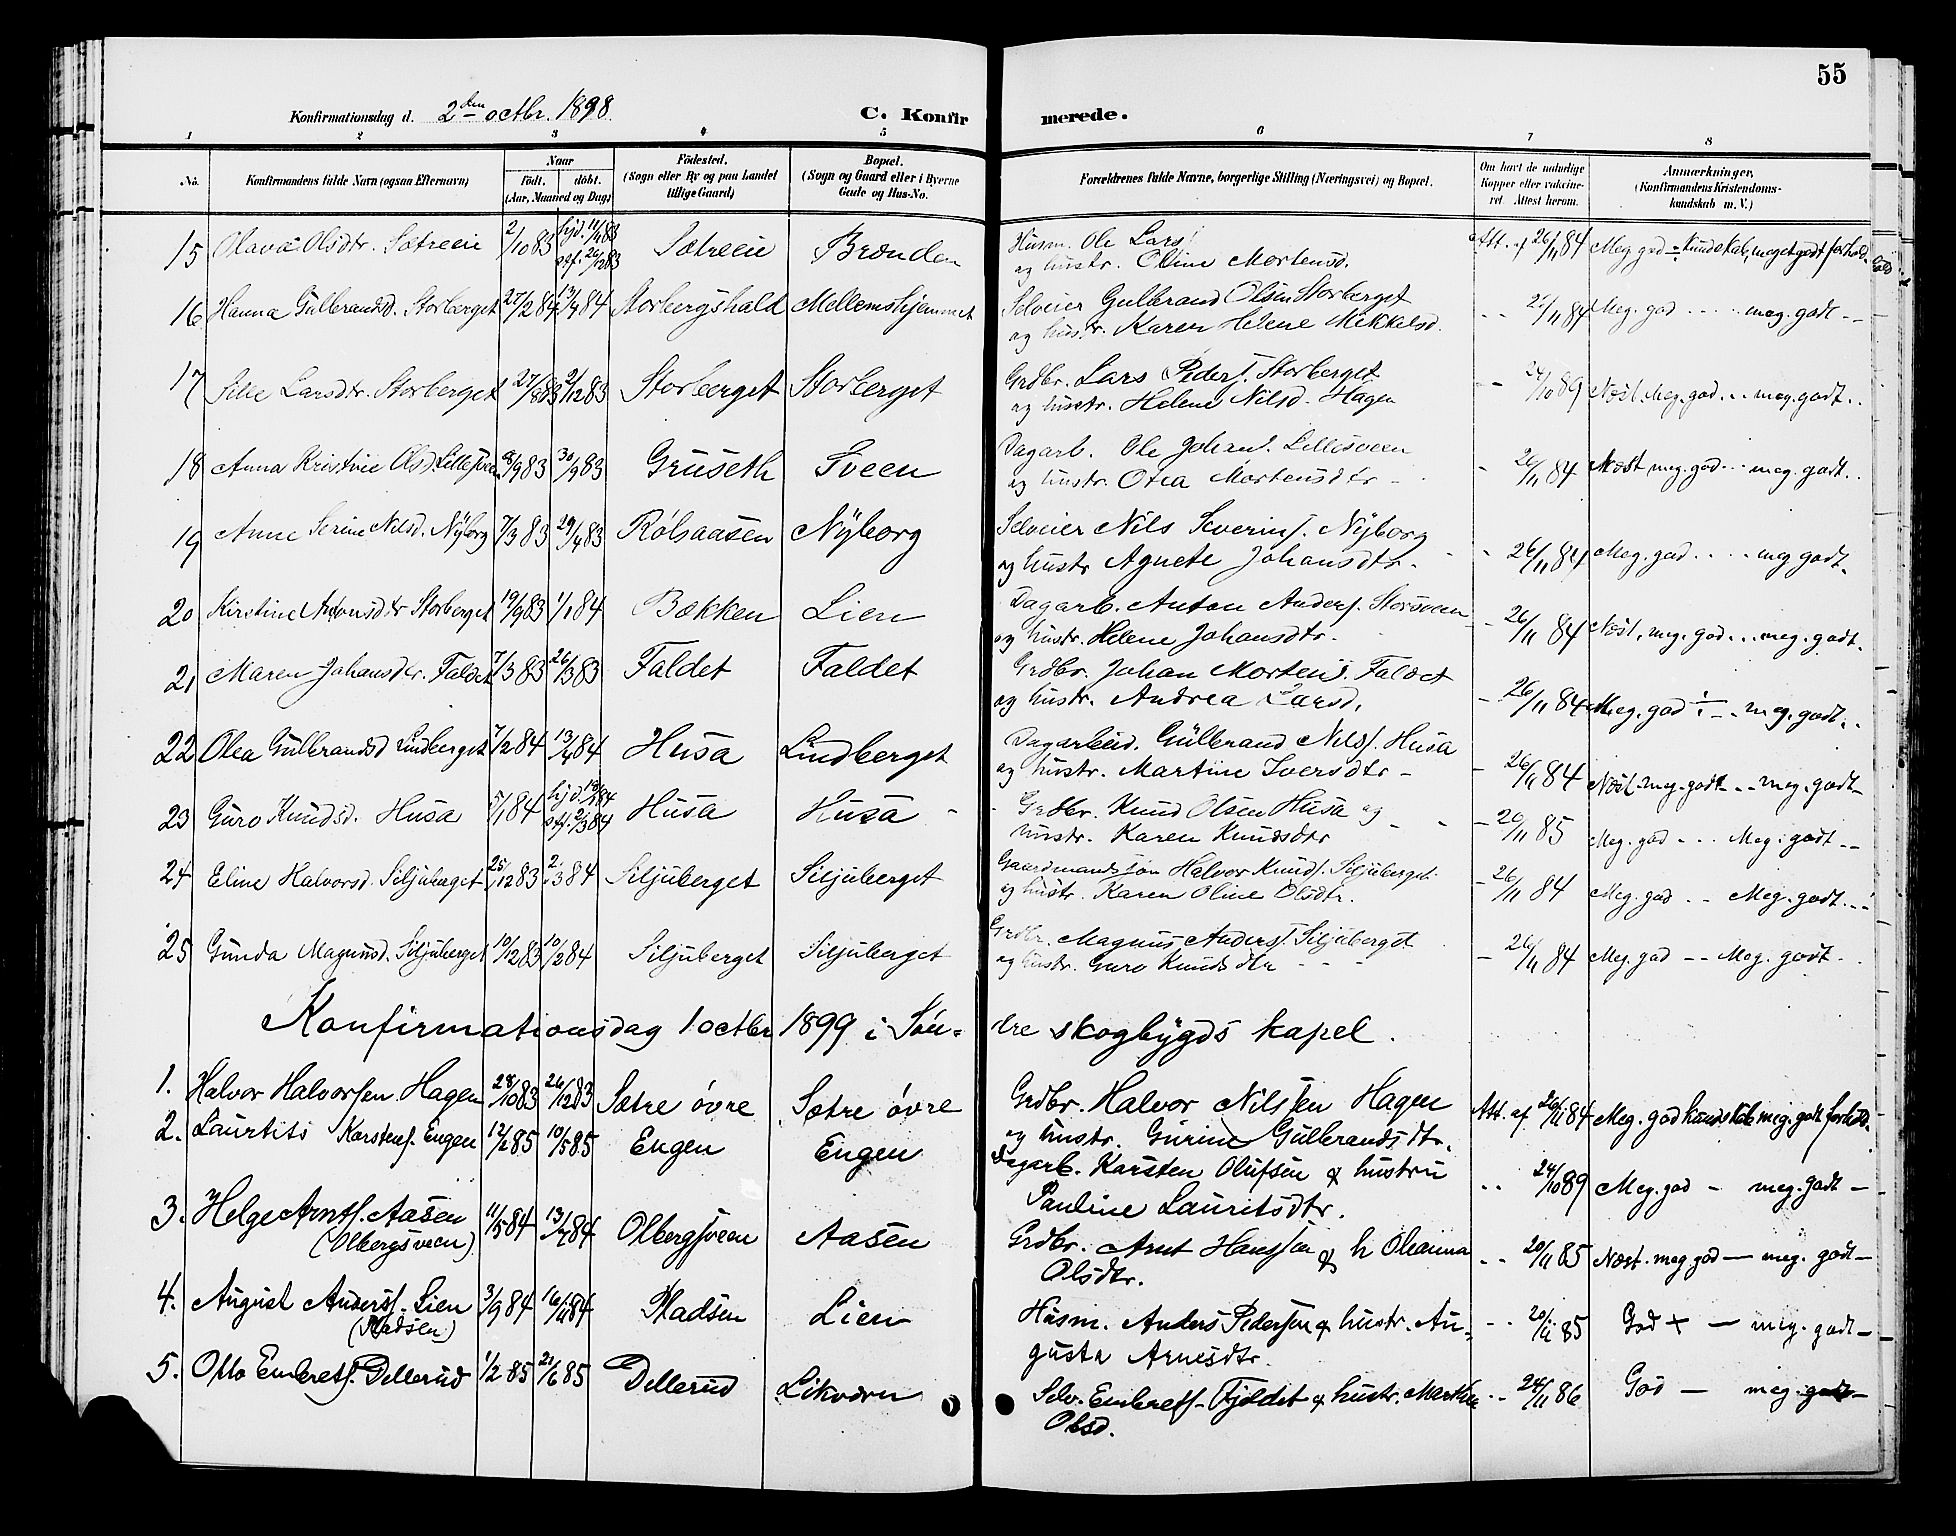 55
Konfirmationsdag d. 2den octbr. 1898. C. Konfirmerede.
1 2 3 4 5 6 7 8
No. Konfirmandens fulde Navn (ogsaa Efternavn) Naar Født. døbt. (Aar, Maaned og Dag) Fødested. (Sogn eller By og paa Landet tillige Gaard) Bopæl. (Sogn og Gaard eller i Byerne Gade og Hus-No. Forældrenes fulde Navne, borgerlige Stilling (Næringsvei) og Bopæl. Om havt de naturlige Kopper eller vakcineret. Attest herom. Anmærkninger, (Konfirmandens Kristendomskundskab m. V.)
15 Olava Olsdtr. Sætreeie 2/10 83 hjd. 11/11 83 stf. 26/12 83 Sætreeie Brænden Husm. Ole Lars. Att. af 26/11 84 Meg. god - kundskab, meget godt forhold.
og hustr. Oline Mortensd.
16 Hanna Gulbrandsd. Storberget 27/2 84 13/4 84 Storbergshald Mellemshjemmet Selveier Gulbrand Olsen Storberget - - 26/11 84 Meg. god - - - - meg. godt - -
og hustr. Karen Helene Mikkelsd.
17 Larsdtr. Storberget 27/8 83 2/12 83 Storberget Storberget Grdbr. Lars Peders. Storberget - - 24/10 89 Næst. meg. god - - meg. godt - -
og hustr. Helene Nilsd. Hagen
18 Anna Kristine Olsd. Lillesveen /9 83 30/9 83 Gruseth Sveen Dagarb. Ole Johans. Lillesveen - 26/11 84 Næst meg. god - - meg. godt - -
og hustr. Otea Mortensdtr -
19 Anne Serine Nilsd. Nyborg 7/3 83 29/4 83 Rølsaasen Nyborg Selveier Nils Severins. Nyborg - - 26/11 84 Meg. god - - - - meg godt -
og hustr Agnete Johansdtr.
20 Kirstine Antonsdtr Storberget 19/9 83 1/1 84 Bækken Lien Dagarb. Anton Anders. Storsveen - 26/11 84 Næst. meg. god - - - meg. godt -
og hustr. Helene Johansdtr.
21 Maren Johansdtr. Faldet 7/3 83 26/3 83 Faldet Faldet Grdbr. Johan Mortens. Faldet - 26/11 84 Meg. god - - - meg. godt - -
og hustr. Andrea Larsd.
22 Olea Gulbrandsd Lindberget 7/2 84 13/4 84 Husa Lindberget Dagarbeid. Gulbrand Nils. Husa - 26/11 84 Næst meg. godt - - meg. godt -
og hustr. Martine Iversdtr -
23 Guro Knudsd. Husa 5/1 84 hjd. 13/1 84 stf. 2/3 84 Husa Husa - Grdbr. Knud Olsen Husa og - - - 20/11 85 Meg. god - - - Meg. godt - -
hustr. Karen Knudsdtr
24 Eline Halvorsd. Siljuberget 25/12 83 2/3 84 Siljuberget Siljuberget Gaardmandssøn Halvor Knuds. Siljuberget - 26/11 84 Meg. god - - Meg. godt - -
og hustr. Karen Oline Olsdtr.
25 Gunda Magnusd. Siljuberget 10/12 83 10/2 84 Siljuberget Siljuberget Grdbr. Magnus Anders. Siljuberget - 26/11 84 Meg. god - - Meg. godt - -
og hustr. Guro Knudsdtr - - -
Konfirmationsdag 1 octbr 1899 i Søndre skogbygds kapel.
1. Halvor Halvorsen Hagen 28/10 83 26/12 83 Sætre øvre Sætre øvre Grdbr. Halvor Nilssen Hagen Att. af 26/11 84 Meg. god kundskab meg. godt forhold.
og hustr. Gurine Gulbrandsdtr.
2. Laurtits Karstens. Engen 12/2 85 10/5 85 Engen Engen Dagarb. Karsten Olufsen & hustru - - 24/10 89 Meg. god - meg. godt -
Pauline Lauritsdtr.
3. Helge Arnts. Aasen 11/5 84 13/7 84 Olbergsveen Aasen Grdbr. Arnt Hanssen & h Oleanna - - 20/11 85 Næst. meg god - meg. godt -
(Olbergsveen) Olsdtr.
4. August Anders. Lien 3/9 84 16/11 84 Pladsen Lien Husm. Anders Pedersen & hustr. Au- - - 20/11 85 God + - meg. godt -
(Pladsen) gusta Arnesdtr.
5. Otto Embrets. Dellerud 1/2 85 21/6 85 Dellerud Likværn Selv. Embret - Fjeldet & hustr. Marthea - - 24/11 86 God - meg. godt -
Olsd.